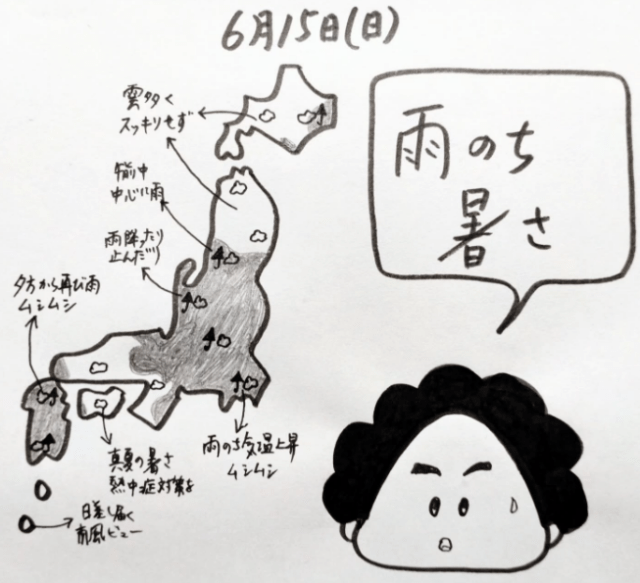 6月15日(日)
雲多く
スッキリせず
午前中
中心に雨
雨降ったり
止んだり
夕方から再び雨
ムシムシ
真夏の暑さ
熱中症対策を
雨のち気温上昇
ムシムシ
日差し届く
南風ビュー
雨のち
暑さ